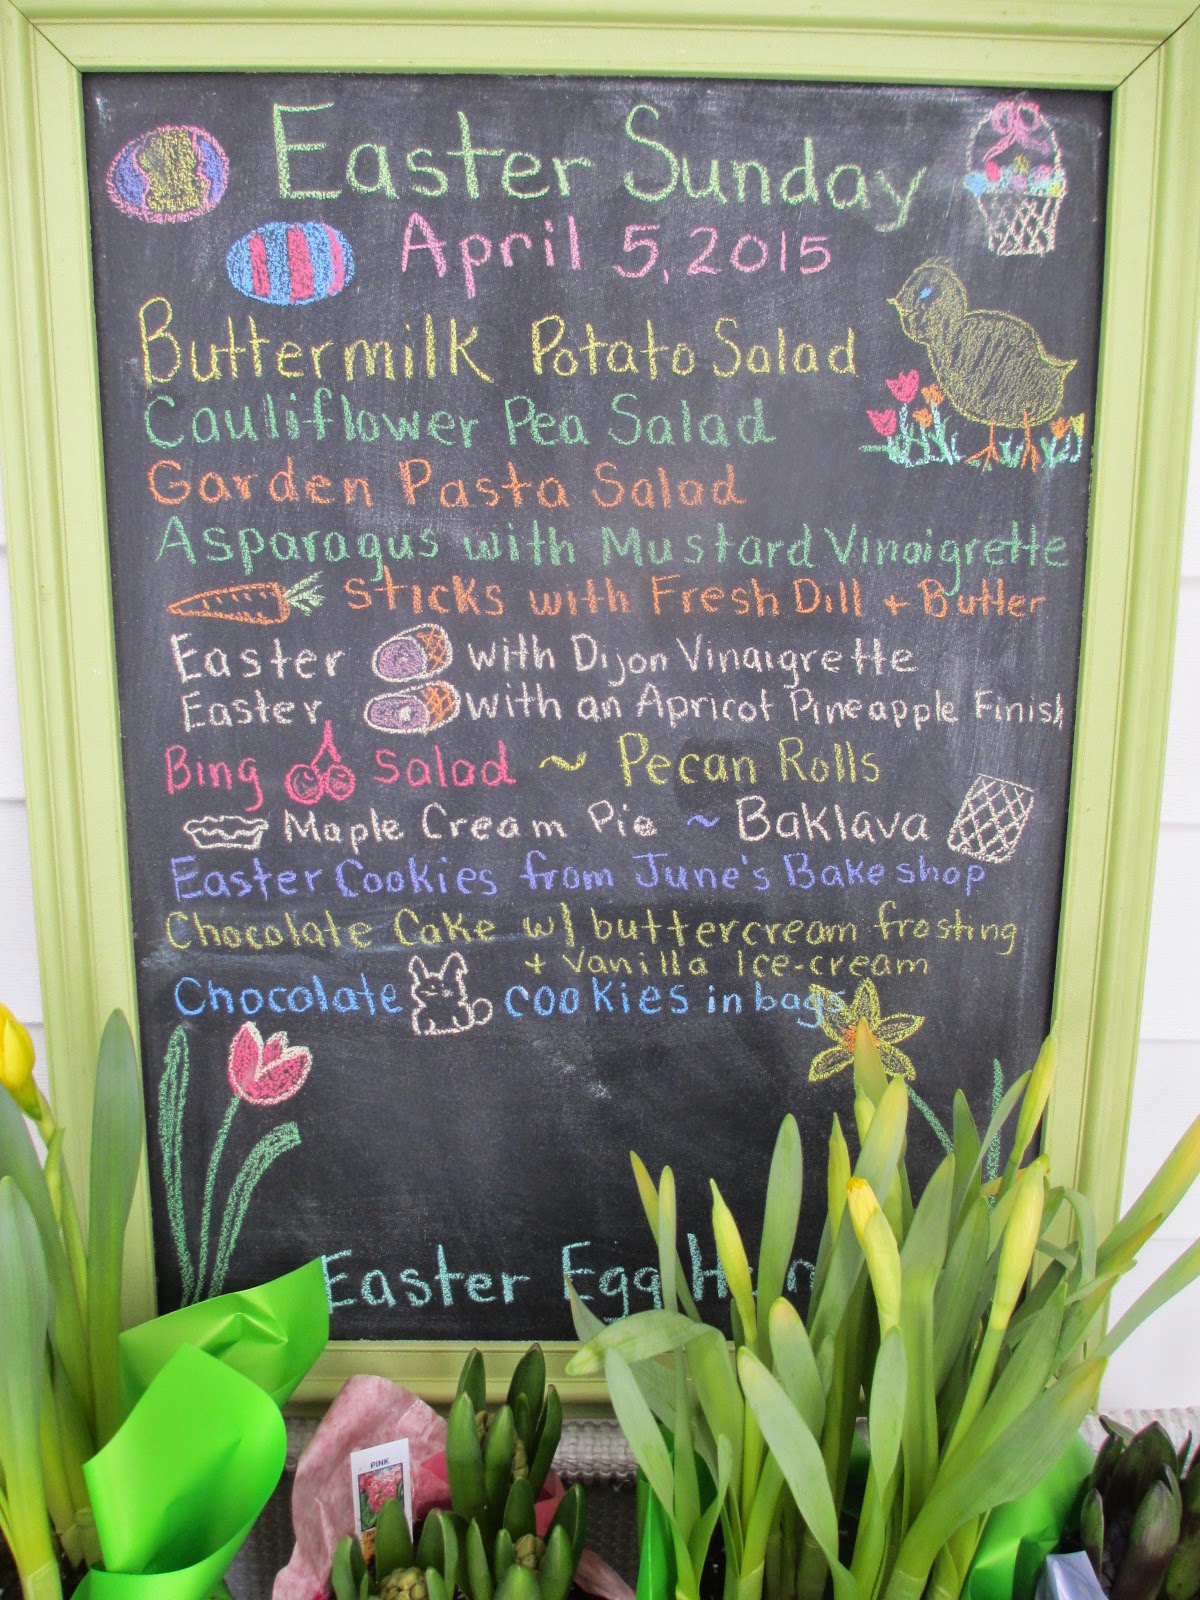 Easter Sunday
April 5, 2015
Buttermilk Potato Salad
Cauliflower Pea Salad
Garden Pasta Salad
Asparagus with Mustard Vinaigrette
Sticks with Fresh Dill + Butter
Easter with Dijon Vinaigrette
Easter with an Apricot Pineapple Finish
Bing Salad ~ Pecan Rolls
Maple Cream Pie ~ Baklava
Easter Cookies from June's Bakeshop
Chocolate Cake w/ buttercream frosting
+ Vanilla Ice-cream
Chocolate cookies in bags
Easter Egg
PINK